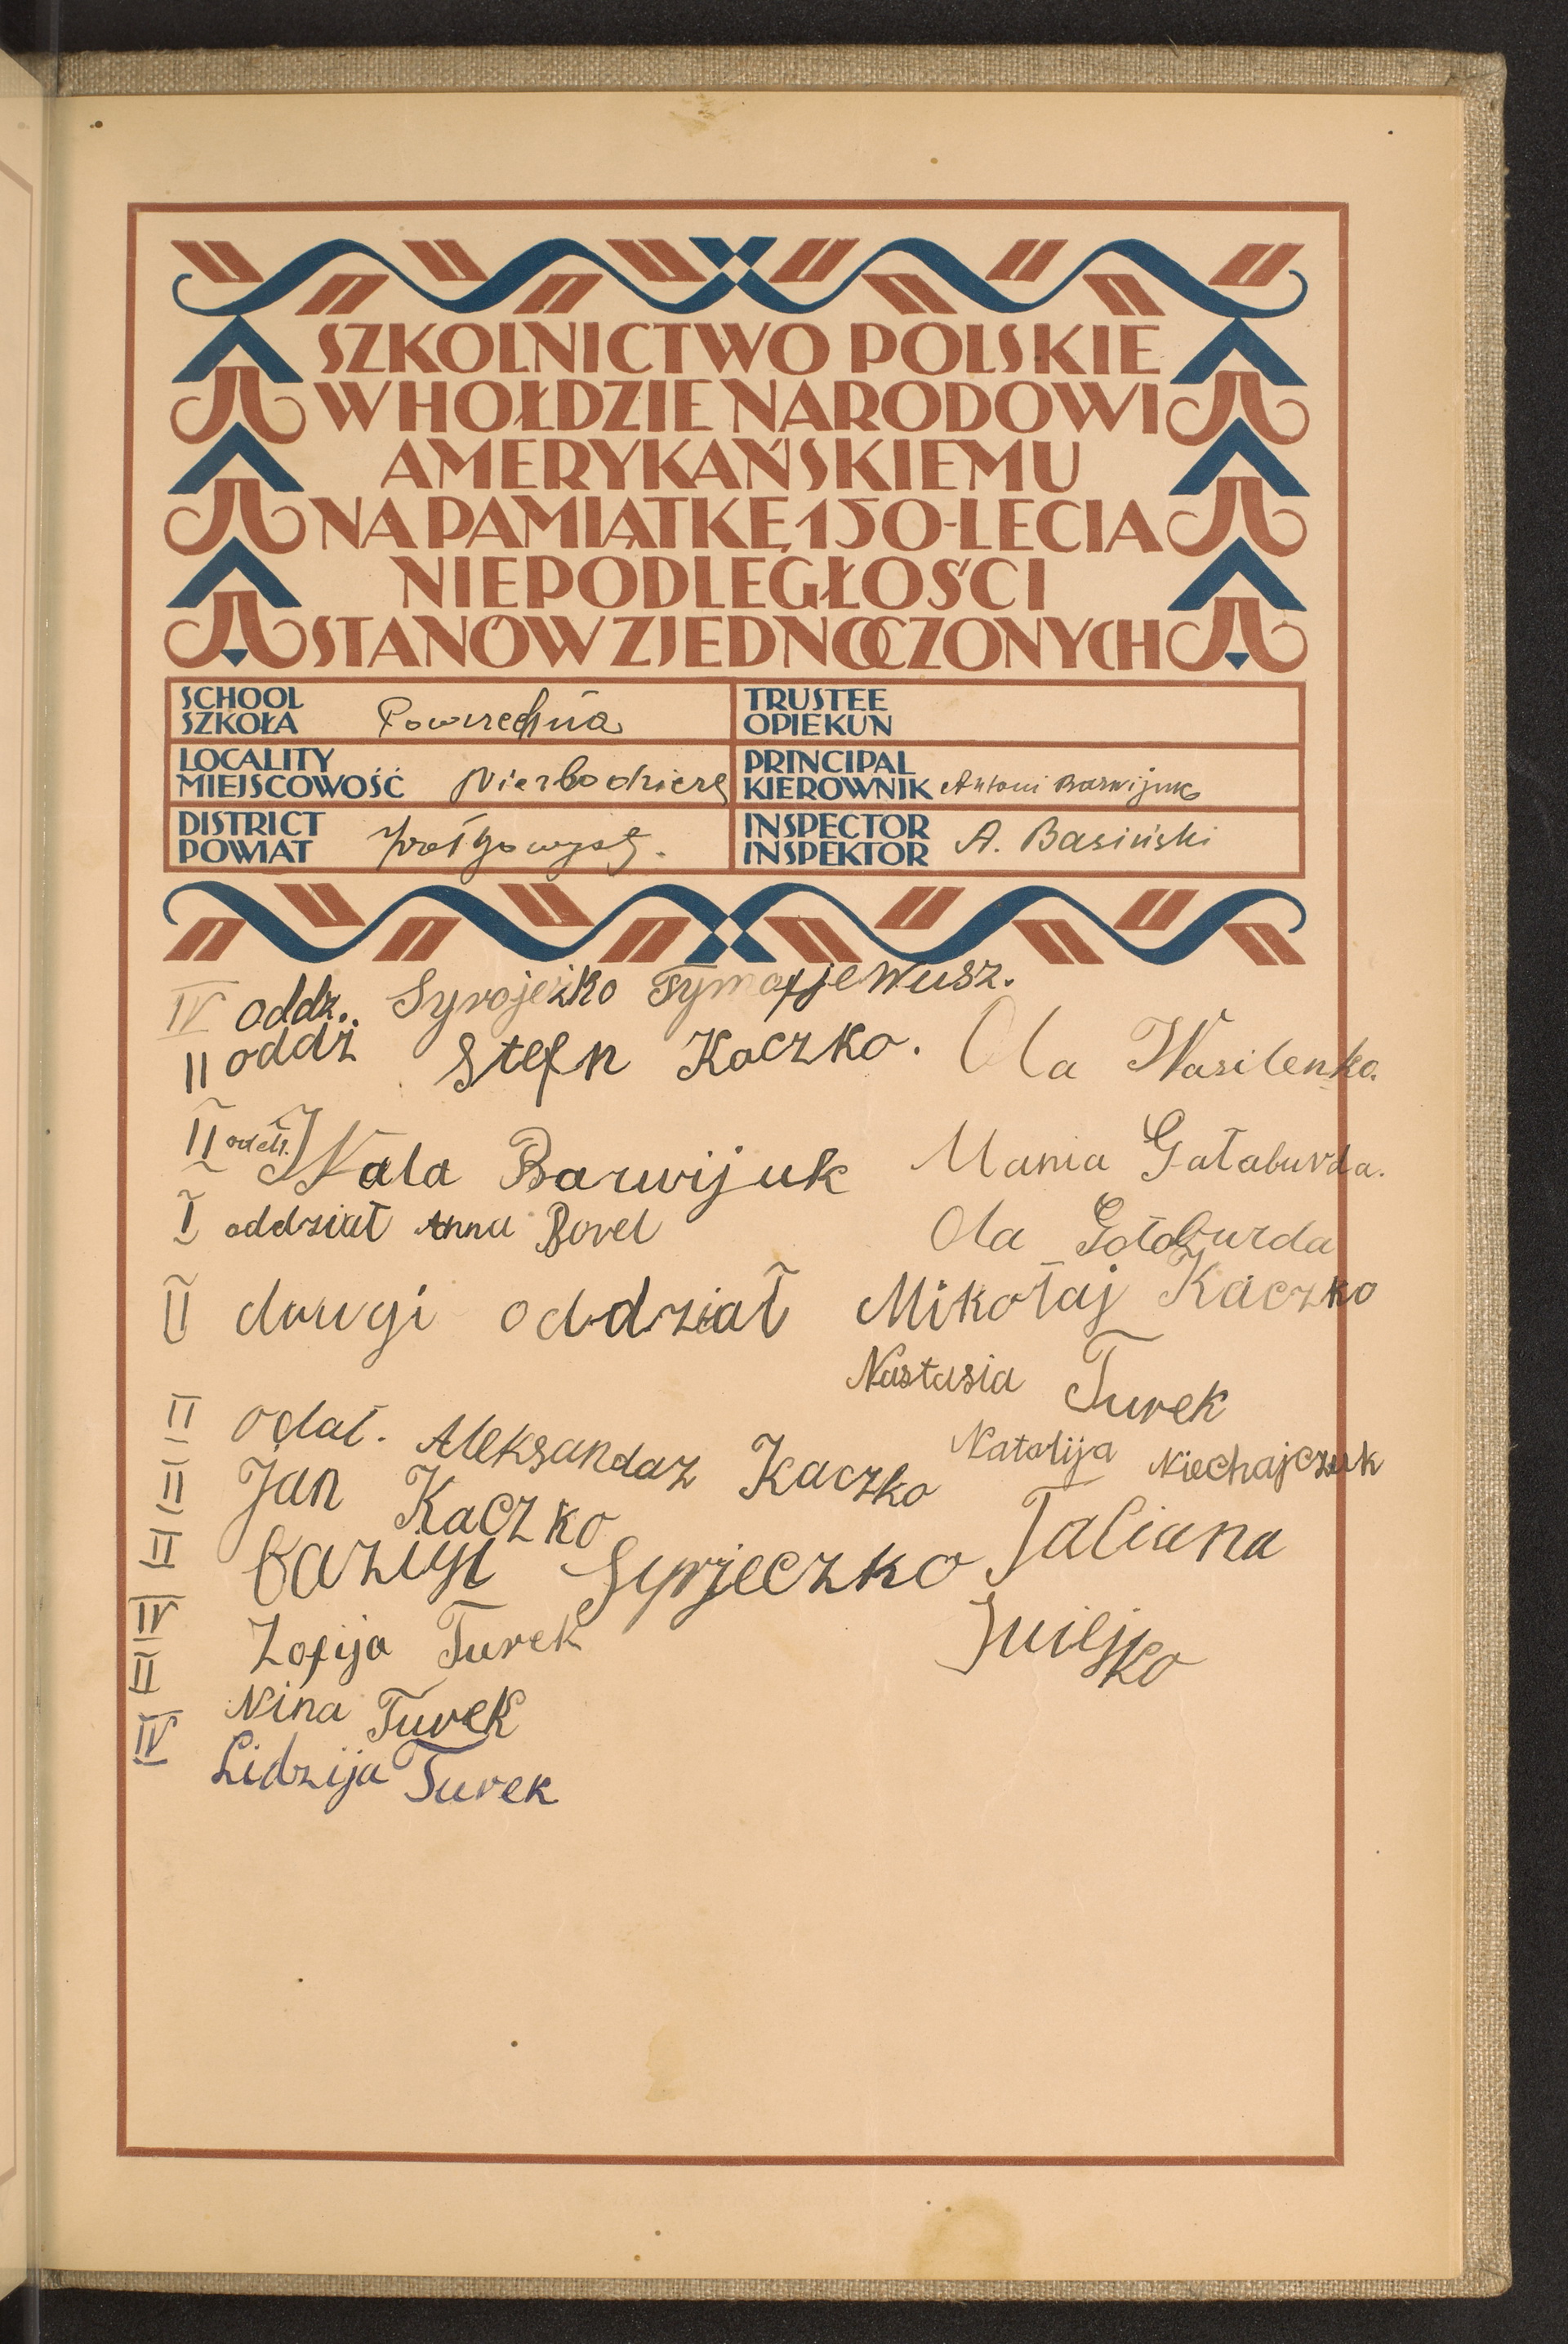 SZKOLNICTWO POLSKIE
W HOŁDZIE NARODOWI
AMERYKAŃSKIEMU
NA PAMIĄTKĘ 150-LECIA
NIEPODLEGŁOŚCI
STANÓW ZJEDNOCZONYCH
SCHOOL
SZKOŁA Powszechna
TRUSTEE
OPIEKUN
LOCALITY
MIEJSCOWOŚĆ
PRINCIPAL
KIEROWNIK Antoni Barwijuk
DISTRICT
POWIAT
INSPECTOR
INSPEKTOR A. Basiński
IV oddz. Syrojeżko
II oddz Stefn Kaczko. Ola Wasilenko.
II oddz. Wala Barwijuk Mania Gałaburda.
I oddział Anna Borel Ola Gołoburda
II drugi oddział Mikołaj Kaczko
Nastasia Turek
II oddał. Aleksandaz Kaczko Natalija Niechajczuk
II Jan Kaczko
II Bazuyl Syrjeczko Taliana
IV Zofija Turek
II Nina Turek
IV Lidzija Turek